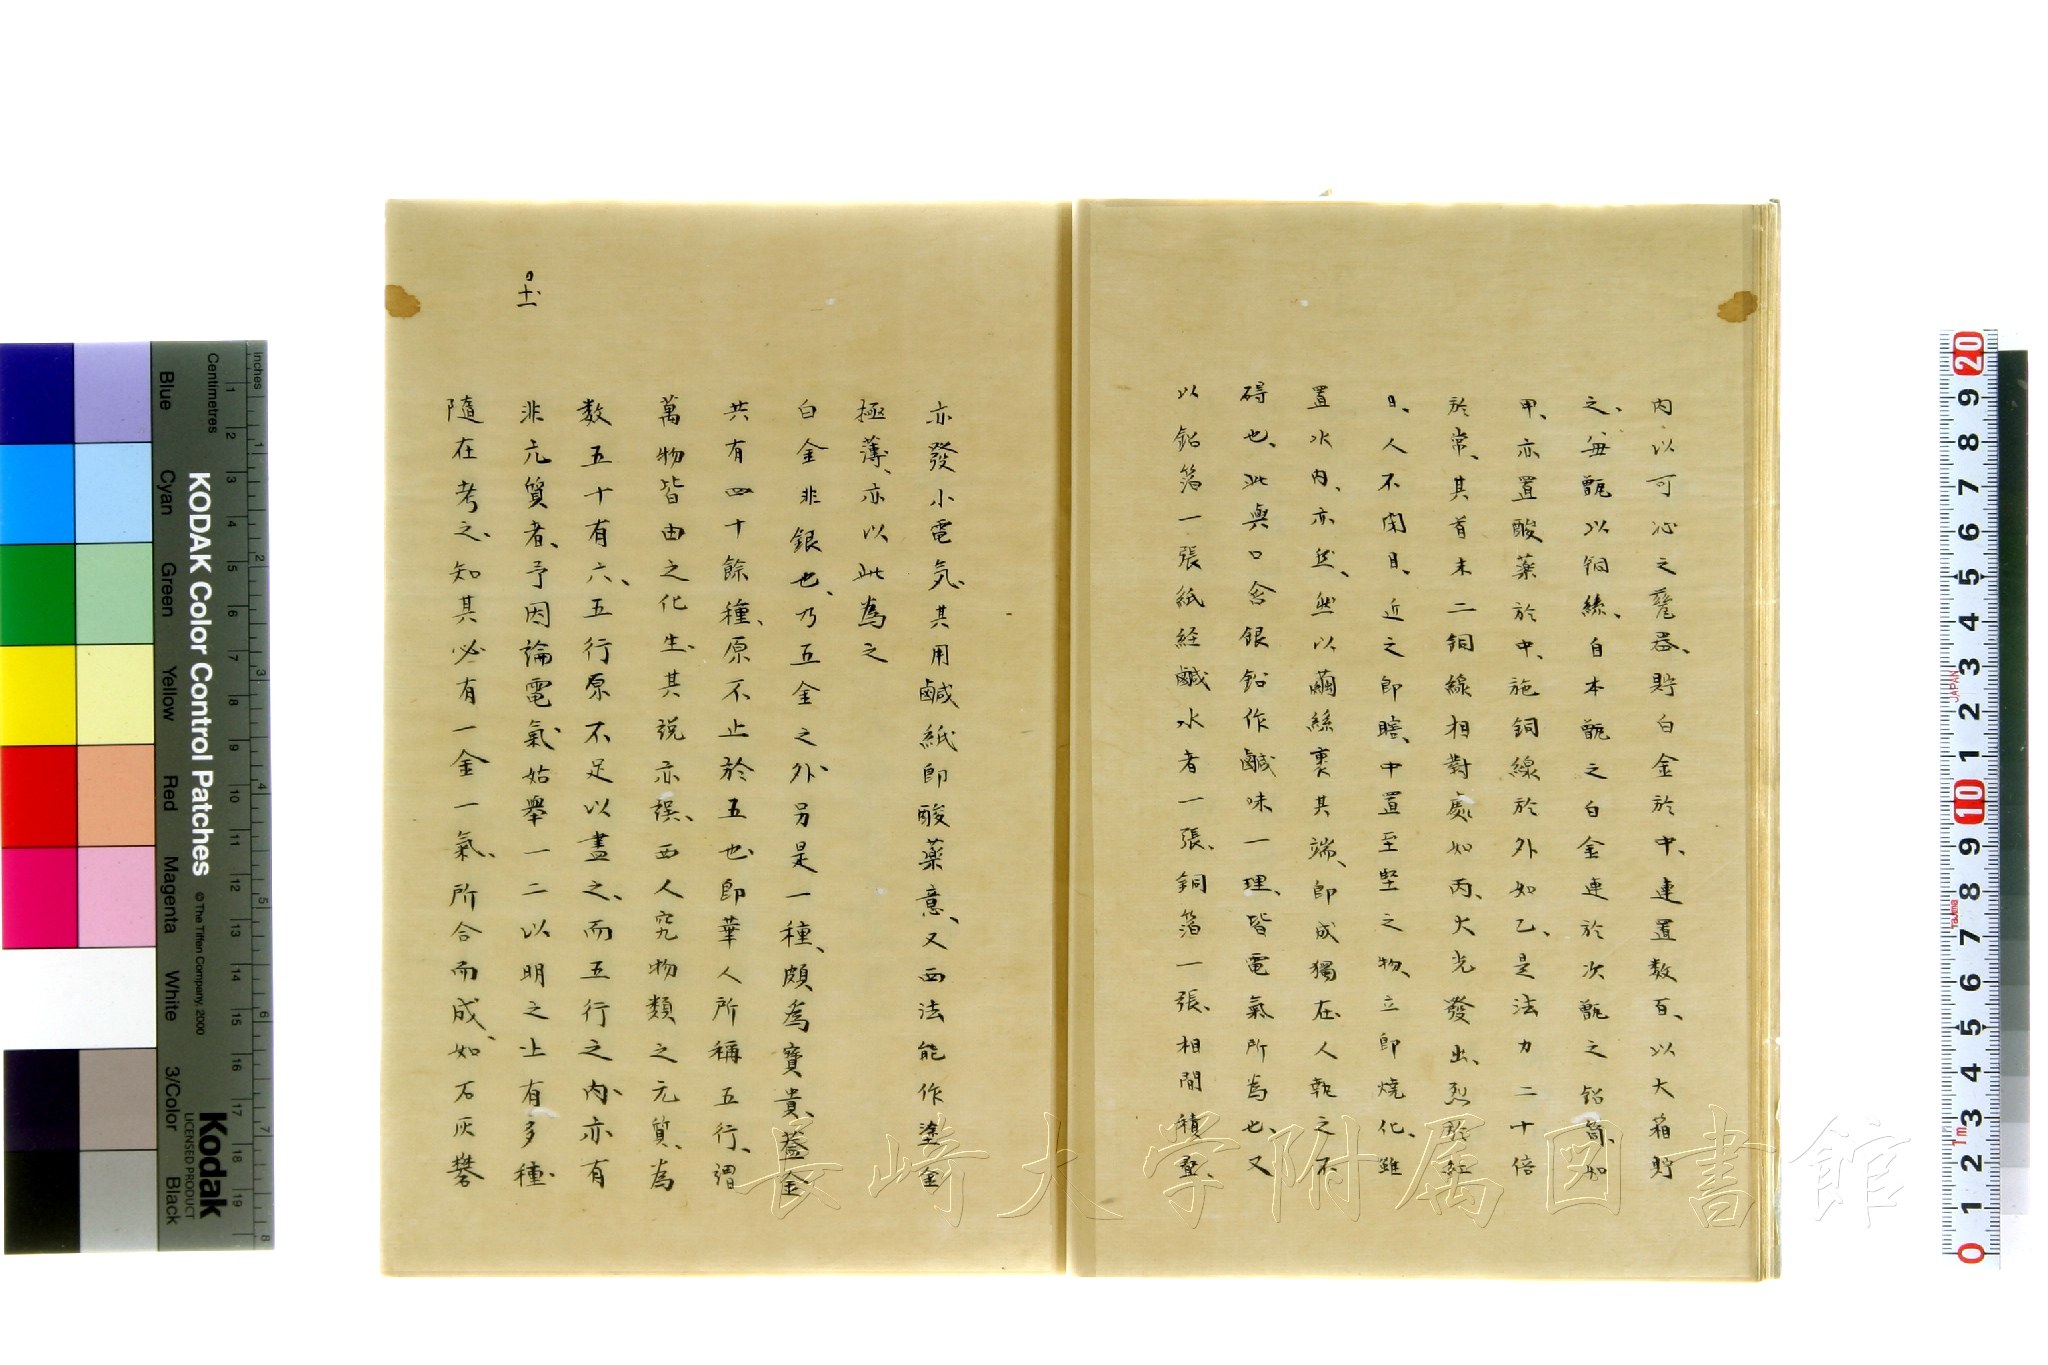 内以可沁之甕器、貯白金於中、連置数百、以大箱貯
之、每甑以铜絲、自本甑之白金連於次甑之铅筩、如
甲、亦置酸薬於中、施铜線於外如乙、是法力二十倍
於常、其首末二铜線相對處如丙、火光發出、烈於紅
日、人不閉目、近之即瞎、中置至堅之物、立即燒化、雖
置水内、亦然、然以繭絲裹其端、即成獨在、人執之不
碍也、此與口含银鉛作鹹味一理、皆電氣所為也、又
以鉛箔一張紙経鹹水者一張、铜箔一張、相間積疊、
亦發小電気、其用鹹紙即酸薬意、又西法能作塗金
極薄、亦以此為之
白金非銀也、乃五金之外、另是一種、頗為寶貴、蓋金
共有四十餘種、原不止於五也、即華人所稱五行、謂
萬物皆由之化生、其説亦误、西人究物類之元質、為
数五十有六、五行原不足以盡之、而五行之内、亦有
非元質者、予因論電氣、姑舉一二以明之、止有多種
隨在考之、知其必有一金一氣、所合而成、如石灰礬
四十一
長崎大学附属図書館
KODAK Color Control Patches
© The Tiffen Company, 2000
Kodak
LICENSED PRODUCT
Centimetres
inches
Blue
Cyan
Green
Yellow
Red
Magenta
White
3/Color
Black
1 2 3 4 5 6 7 8 9 10 11 12 13 14 15 16 17 18 19
1 2 3 4 5 6 7 8
20 9 8 7 6 5 4 3 2 1 10 9 8 7 6 5 4 3 2 1 0
JAPAN